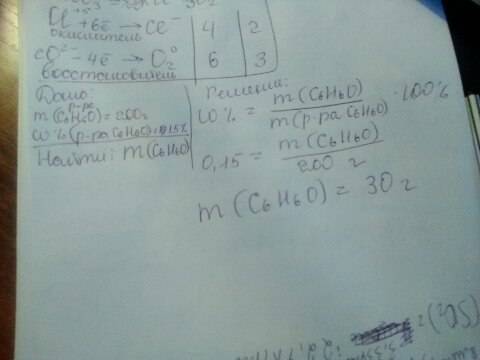 Cl⁺⁵ +6ē → Cl⁻ | 4 | 2
окислитель
2O²⁻ − 4ē → O₂⁰ | 6 | 3
восстановитель
Дано:
m р-ра (C₆H₆O) = 200г
ω% (р-ра C₆H₆O) = 15%
Найти: m(C₆H₆O)
Решение:
ω% = m(C₆H₆O) / m(р-ра C₆H₆O) · 100%
0,15 = m(C₆H₆O) / 200 г
m(C₆H₆O) = 30 г